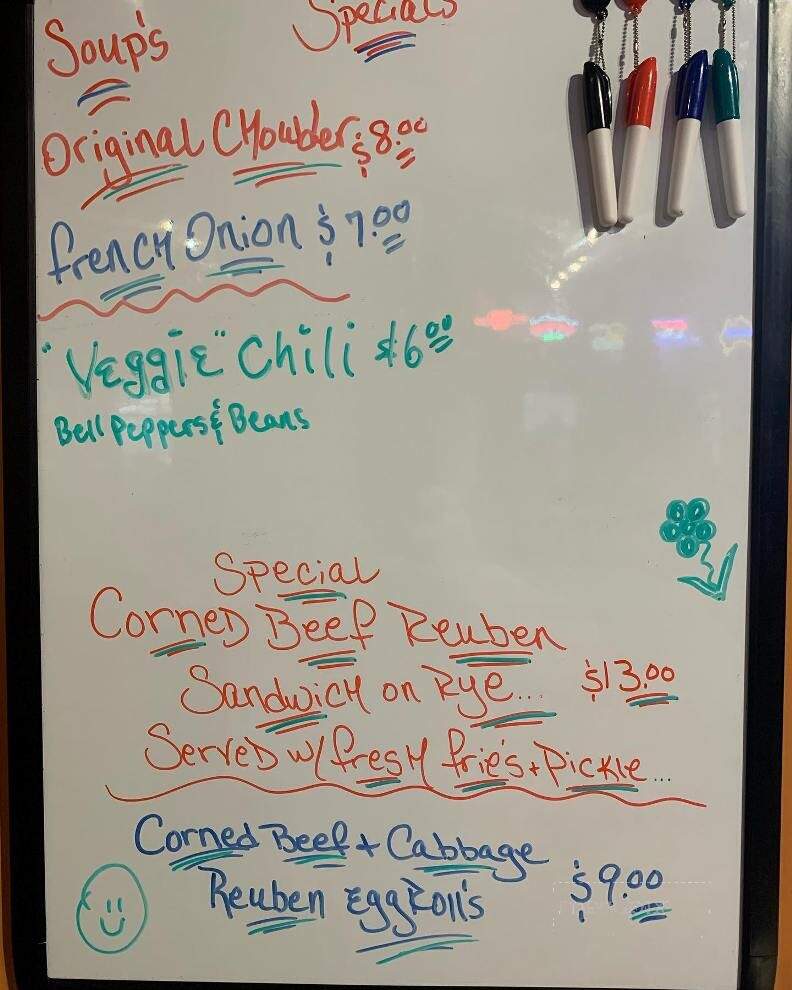 Soup's
Specials
Original Chowder $8.00
French Onion $7.00
"Veggie" Chili $6.00
Bell Peppers & Beans
Special
Corned Beef Reuben
Sandwich on Rye... $13.00
Served w/ fresh frie's + Pickle...
Corned Beef + Cabbage
Reuben EggRoll's $9.00